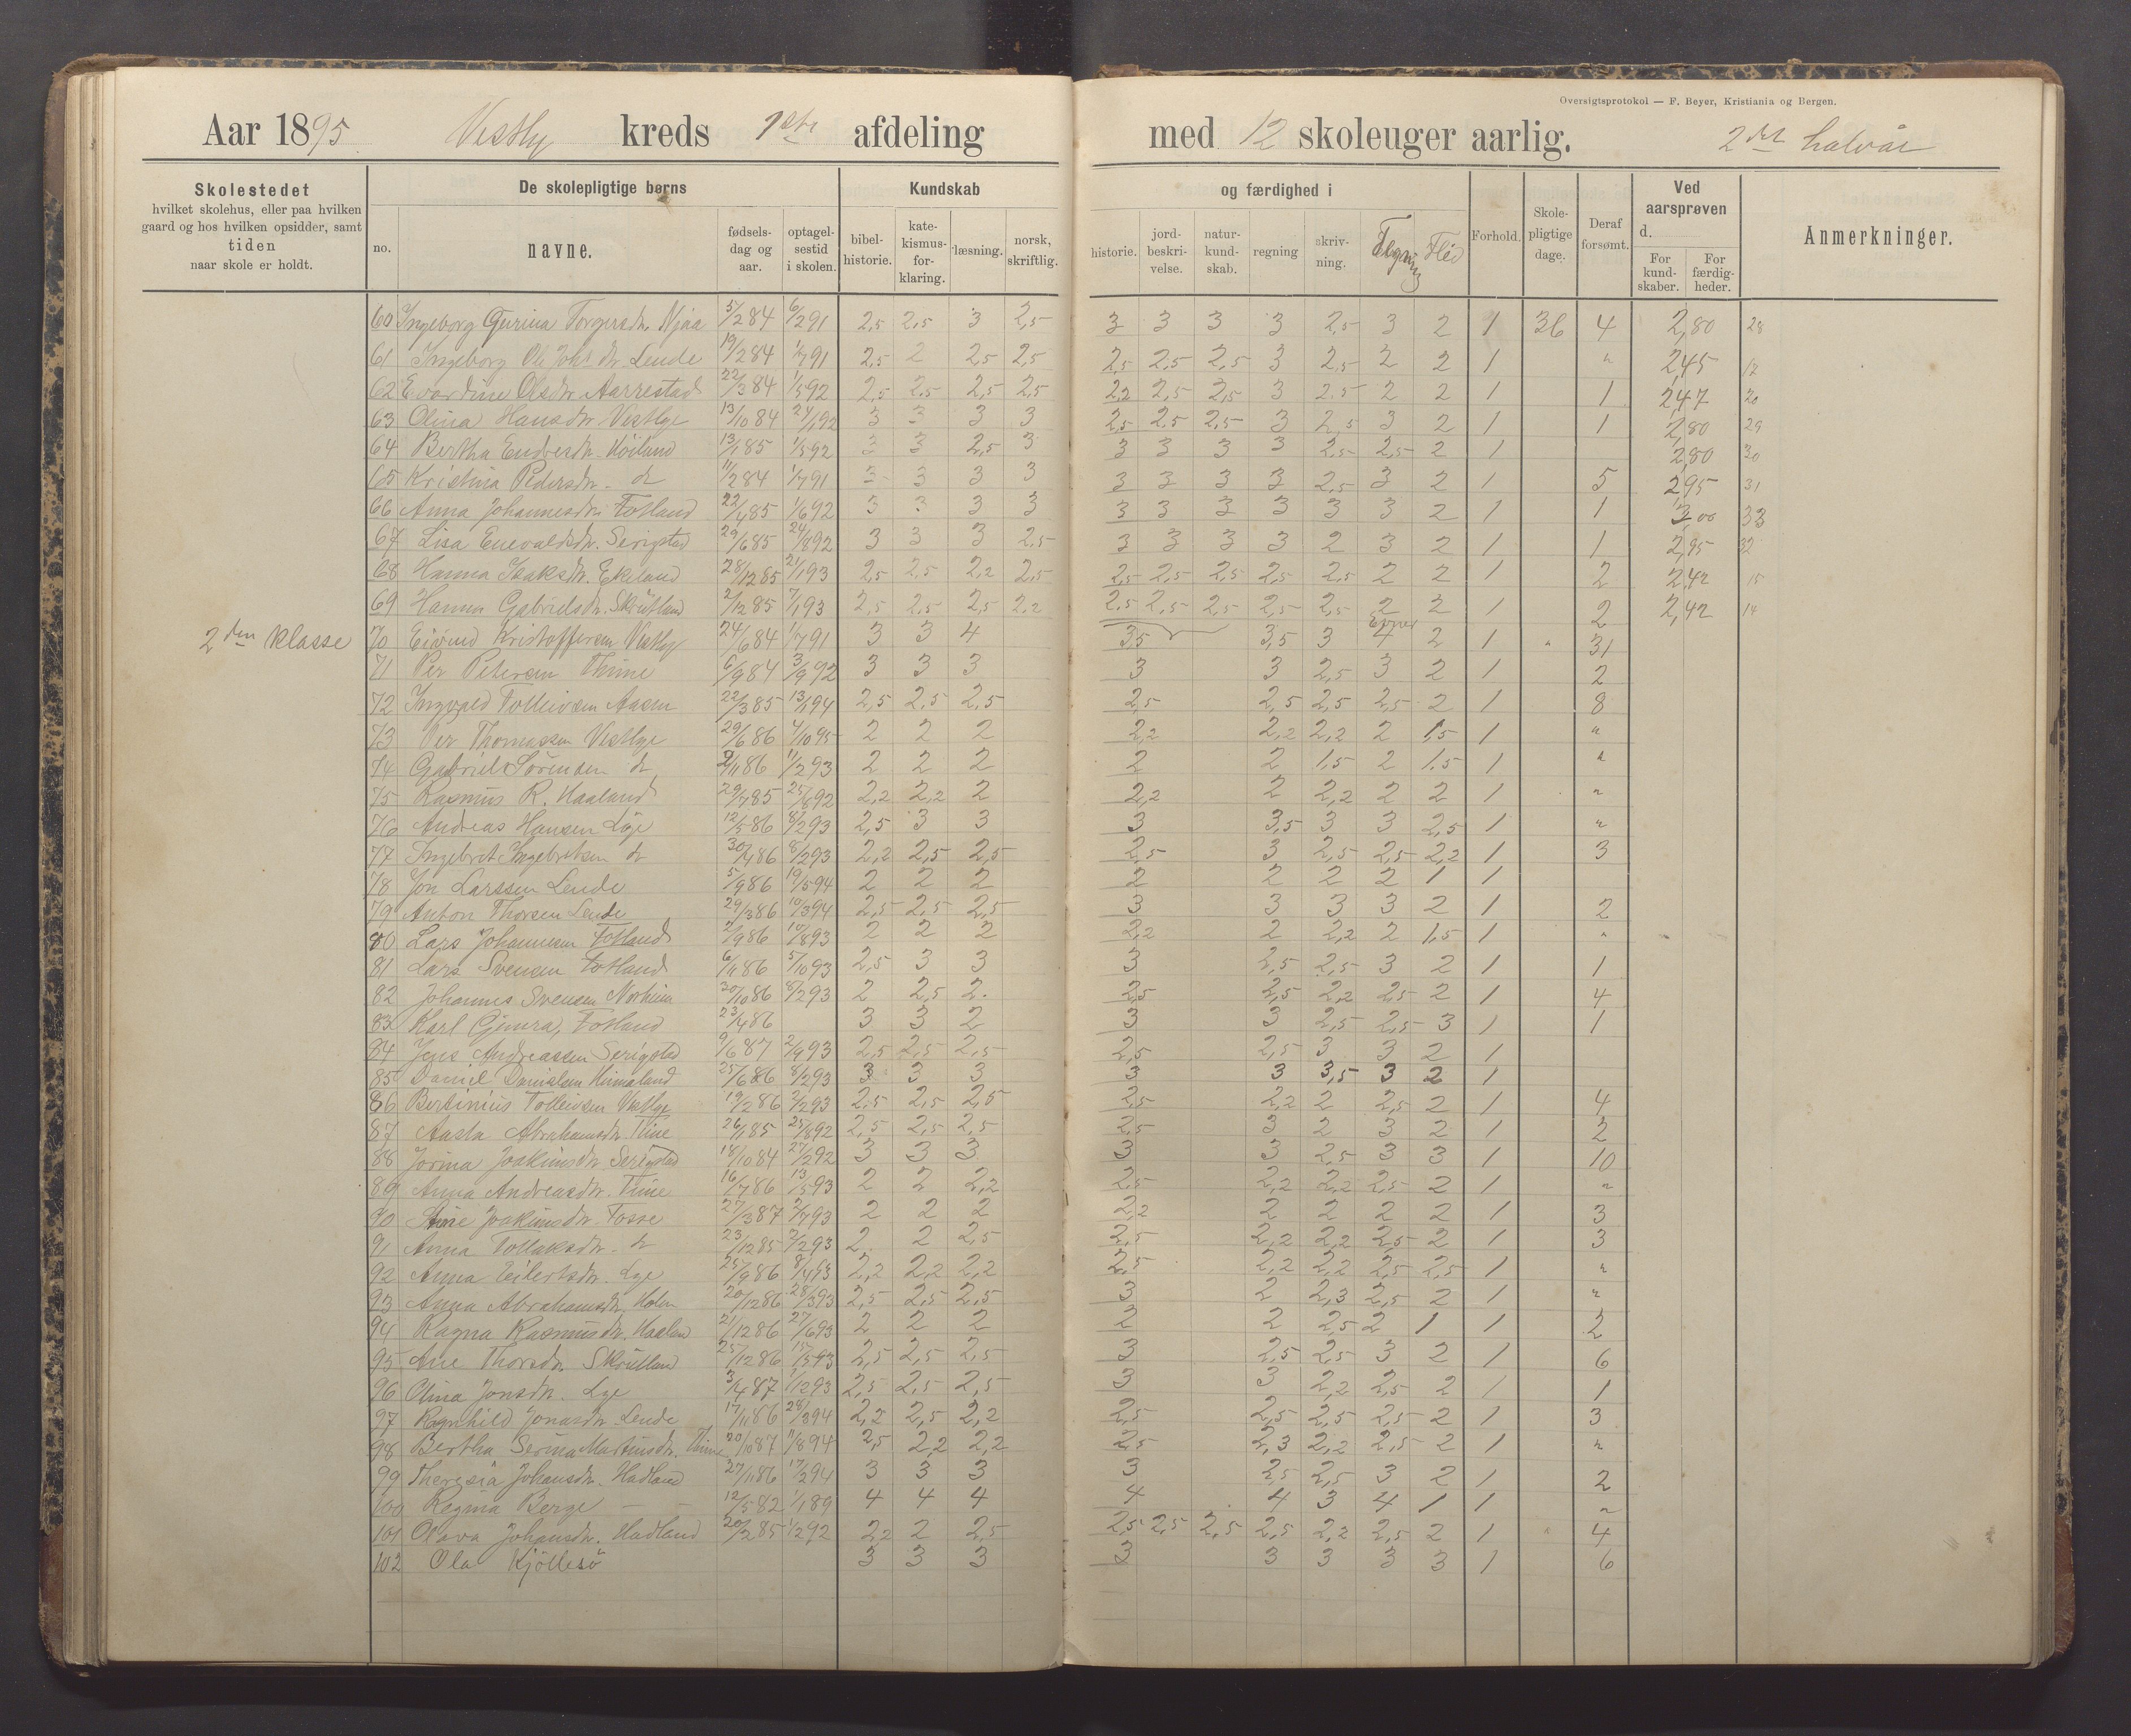 Oversigtsprotokol — F. Beyer, Kristiania og Bergen.
Aar 1895 Vestly kreds 1ste afdeling med 12 skoleuger aarlig. 2det halvår
Skolestedet
hvilket skolehus, eller paa hvilken
gaard og hos hvilken opsidder, samt
tiden
naar skole er holdt.
De skolepligtige børns
no.
navne.
fødsels-
dag og
aar.
optagel-
sestid
i skolen.
Kundskab
bibel-
historie.
kate-
kismus-
for-
klaring.
læsning.
norsk,
skriftlig.
og færdighed i
historie.
jord-
beskri-
velse.
natur-
kund-
skab.
regning
skriv-
ning.
Tegning
Flid
Forhold.
Skole-
pligtige
dage.
Deraf
forsømt.
Ved
aarsprøven
d.
For
kund-
skaber.
For
færdig-
heder.
Anmerkninger.
60 Ingeborg Gurina Torgersdr. Njaa 5/2 84 6/2 91 2,5 2,5 3 2,5 3 3 3 3 2,5 3 2 1 36 4 2,80 28
61 Ingeborg Ole Johs dr. Lende 19/2 84 1/7 91 2,5 2 2,5 2,5 2,5 2,5 2,5 3 2,5 2 2 1 " 2,45 17
62 Evardine Olsdr. Aarrestad 22/3 84 1/5 92 2,5 2,5 2,5 2,5 2,2 2,5 2,5 3 2,5 2 2 1 1 2,47 20
63 Olina Hansdr. Vestlye 13/10 84 24/1 92 3 3 3 3 2,5 2,5 2,5 3 2,5 3 2 1 1 2,80 29
64 Bertha Endresdr. Høiland 13/1 85 1/5 92 3 3 2,5 3 3 3 3 3 2,5 2,5 2 1 2,80 30
65 Kristina Pedersdr. do 11/2 84 1/7 91 3 3 3 3 3 3 3 3 2,5 3 2 1 5 2,95 31
66 Anna Johannesdr. Fotland 22/4 85 1/6 92 3 3 3 3 3 3 3 3 3 3 2 1 1 3,00 33
67 Lisa Enevaldsdr. Serigstad 29/6 85 24/8 92 3 3 3 2,5 3 3 3 3 2 3 2 1 1 2,95 32
68 Hanna Isaksdr. Ekeland 28/12 85 21/1 93 2,5 2,5 2,2 2,5 2,5 2,5 2,5 2,5 2,5 2 2 1 2 2,42 15
69 Hanna Gabrielsdr. Skrutland 2/12 85 7/1 93 2,5 2,5 2,5 2,2 2,5 2,5 2,5 2,5 2,5 2 2 1 2 2,42 14
2den klasse 70 Eivind Kristoffersen Vestly 24/6 84 1/7 91 3 3 4 3,5 3,5 3 4 2 1 " 31
71 Per Petersen Thime 6/9 84 3/9 92 3 3 3 3 3 2,5 3 2 1 2
72 Ingvald Tolleivsen Aasen 22/3 85 13/1 94 2,5 2,5 2,5 2,5 2,5 2,5 2,5 2 1 8
73 Per Thomassen Vestlye 29/6 86 4/10 95 2 2 2 2,2 2,2 2,2 2 1,5 1 "
74 Gabriel Sørensen do 2/11 86 11/2 93 2 2 2 2 2 1,5 2 1,5 1 "
75 Rasmus R. Haaland 29/7 85 25/8 92 2,2 2,2 2 2,2 2 2,2 2 2 1 "
76 Andreas Hansen Lye 12/5 86 8/2 93 2,5 3 3 3 3,5 3 3 2,5 1 "
77 Ingebret Ingebretsen do 30/4 86 8/2 93 2,2 2,5 2,5 2,5 3 2,5 2,5 2,2 1 3
78 Jon Larssen Lende 5/9 86 19/5 94 2 2 2 2 2 2 2 1 1
79 Anton Thorsen Lende 29/3 86 10/3 94 2,5 2,5 2,5 3 3 3 3 2 1 2
80 Lars Johannesen Fotland 2/9 86 10/8 93 2 2 2 2,2 2 2,2 2 1,5 1 "
81 Lars Svensen Fotland 6/11 86 5/10 93 2,5 3 3 3 2,5 2,5 3 2 1 1
82 Johannes Svensen Norheim 30/10 86 8/2 93 2 2,5 2. 2,5 2,5 2,2 2,5 2 1 4
83 Karl Gjmra, Fotland 23/4 86 3 3 2 3 3 2,5 2,5 3 1 1
84 Jens Andreassen Serigstad 9/6 87 2/9 93 2,5 2,5 2,5 2,5 2,5 3 3 2 1
85 Daniel Danielsen Himaland 25/6 86 8/2 93 3 3 3 3 3 3,5 3 2 1
86 Bertinius Tolleivsen Vestlye 19/2 86 2/2 93 2,5 2,5 2,5 2,5 2,2 2 2,5 2 1 4
87 Aasta Abrahamsdr. Time 26/1 85 25/8 92 2,5 2,5 2,5 2,5 3 2 3 2 1 2
88 Jorina Joakimsdr. Serigstad 18/10 84 27/2 92 3 3 3 3 3 2,5 3 3 1 10
89 Anna Andreasdr. Time 16/7 86 13/5 93 2 2 2,2 2,5 2,2 2,2 2,5 2 1 "
90 Stine Joakimsdr. Fosse 27/3 87 2/7 93 2 2 2 2,2 2 2 2 2 1 3
91 Anna Tollaksdr. do 23/12 85 2/2 93 2. 2 2,5 2,5 2,2 2,2 2,5 2 1 3
92 Anna Eilertsdr. Lye 25/9 86 8/4 93 2,2 2,2 2,2 2,5 2,2 2,2 2,5 2,5 1 "
93 Anna Abrahamsdr. Holen 20/12 86 28/3 93 2,5 2,5 2,5 3 2 2,3 2,5 2 1 "
94 Ragna Rasmusdr. Haalan 21/12 86 27/6 93 2 2 2 2 2 2,5 2 1 1 2
95 Ane Thorsdr. Skrutlan 25/12 86 15/5 93 2,5 2,5 2,5 3 2,5 2,5 3 2 1 6
96 Olina Jonsdr. Lye 3/4 87 1/12 93 2,5 2,5 2,5 3 3 2,2 2,5 2 1 1
97 Ragnhild Jonasdr. Lende 17/11 86 28/3 94 2,2 2,5 2,2 2,5 2,5 2,5 2,5 2 1 3
98 Bertha Serina Martinsdr. Thime 20/10 87 11/8 94 2,5 2,2 2,2 2,5 2,3 2,2 2,5 2 1 "
99 Theresia Johansdr. Hadland 27/11 86 17/2 94 3 3 3 3 2,5 2,5 3 2 1 2
100 Regina Berge — — 12/5 82 1/1 89 4 4 4 4 4 3 4 1 1 "
101 Olava Johansdr. Hadland 20/2 85 1/2 92 2,2 2 2,5 2,5 2,5 2,5 2,5 2,2 2,5 2 1 " 4
102 Ola Kjöllesö 3 3 3 3 3 3 3 3 1 6